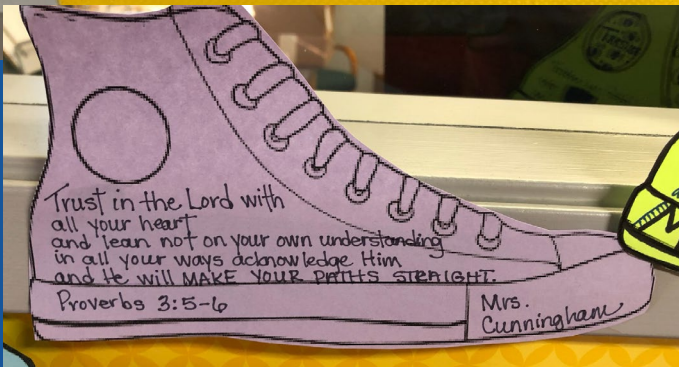 Trust in the Lord with
all your heart
and lean not on your own understanding
in all your ways acknowledge Him
and He will MAKE YOUR PATHS STRAIGHT.
Proverbs 3:5-6
Mrs.
Cunningham